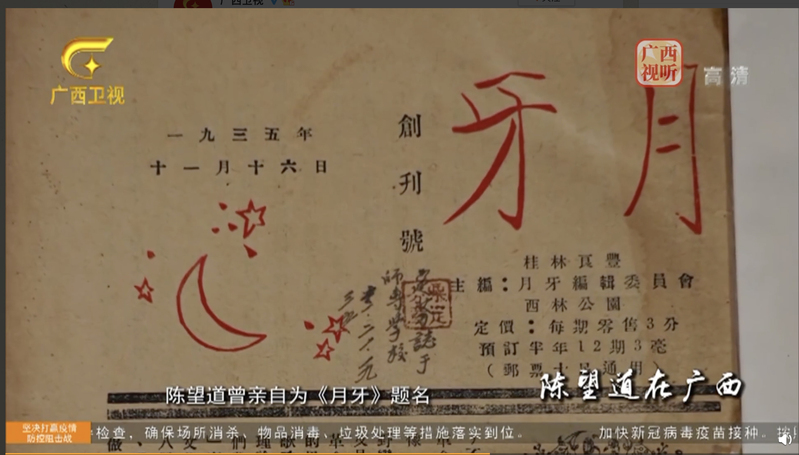 广西卫视
广西卫视
广西
视听
高清
月牙
創刊號
一九三五年
十一月十六日
桂林良豐
主編：月牙編輯委員會
西林公園
定價：每期零售3分
預訂半年12期3毫
（郵票十足通用
师专学校
陈望道曾亲自为《月牙》题名
陈望道在广西
坚决打赢疫情
防控阻击战
检查，确保场所消杀、物品消毒、垃圾处理等措施落实到位。 加快新冠病毒疫苗接种。按